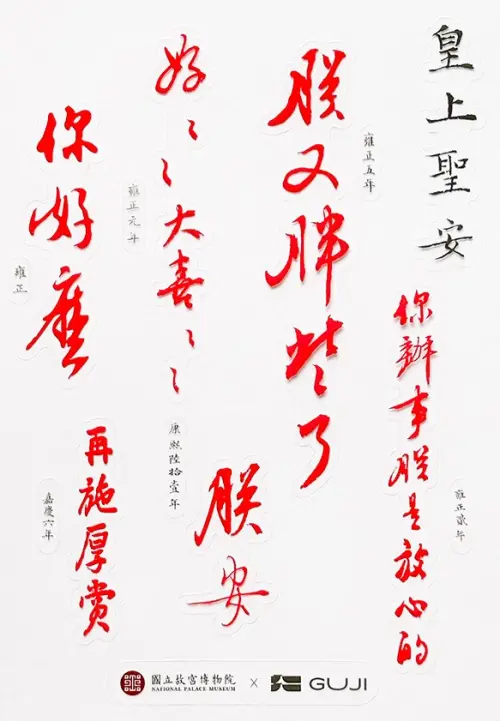 皇上聖安
你辦事朕是放心的
雍正貳年
朕又胖些了
雍正五年
朕安
康熙陸拾壹年
好〻大喜〻〻
雍正元年
你好麼
雍正
再施厚賞
嘉慶六年
國立故宮博物院
NATIONAL PALACE MUSEUM
x
GUJI